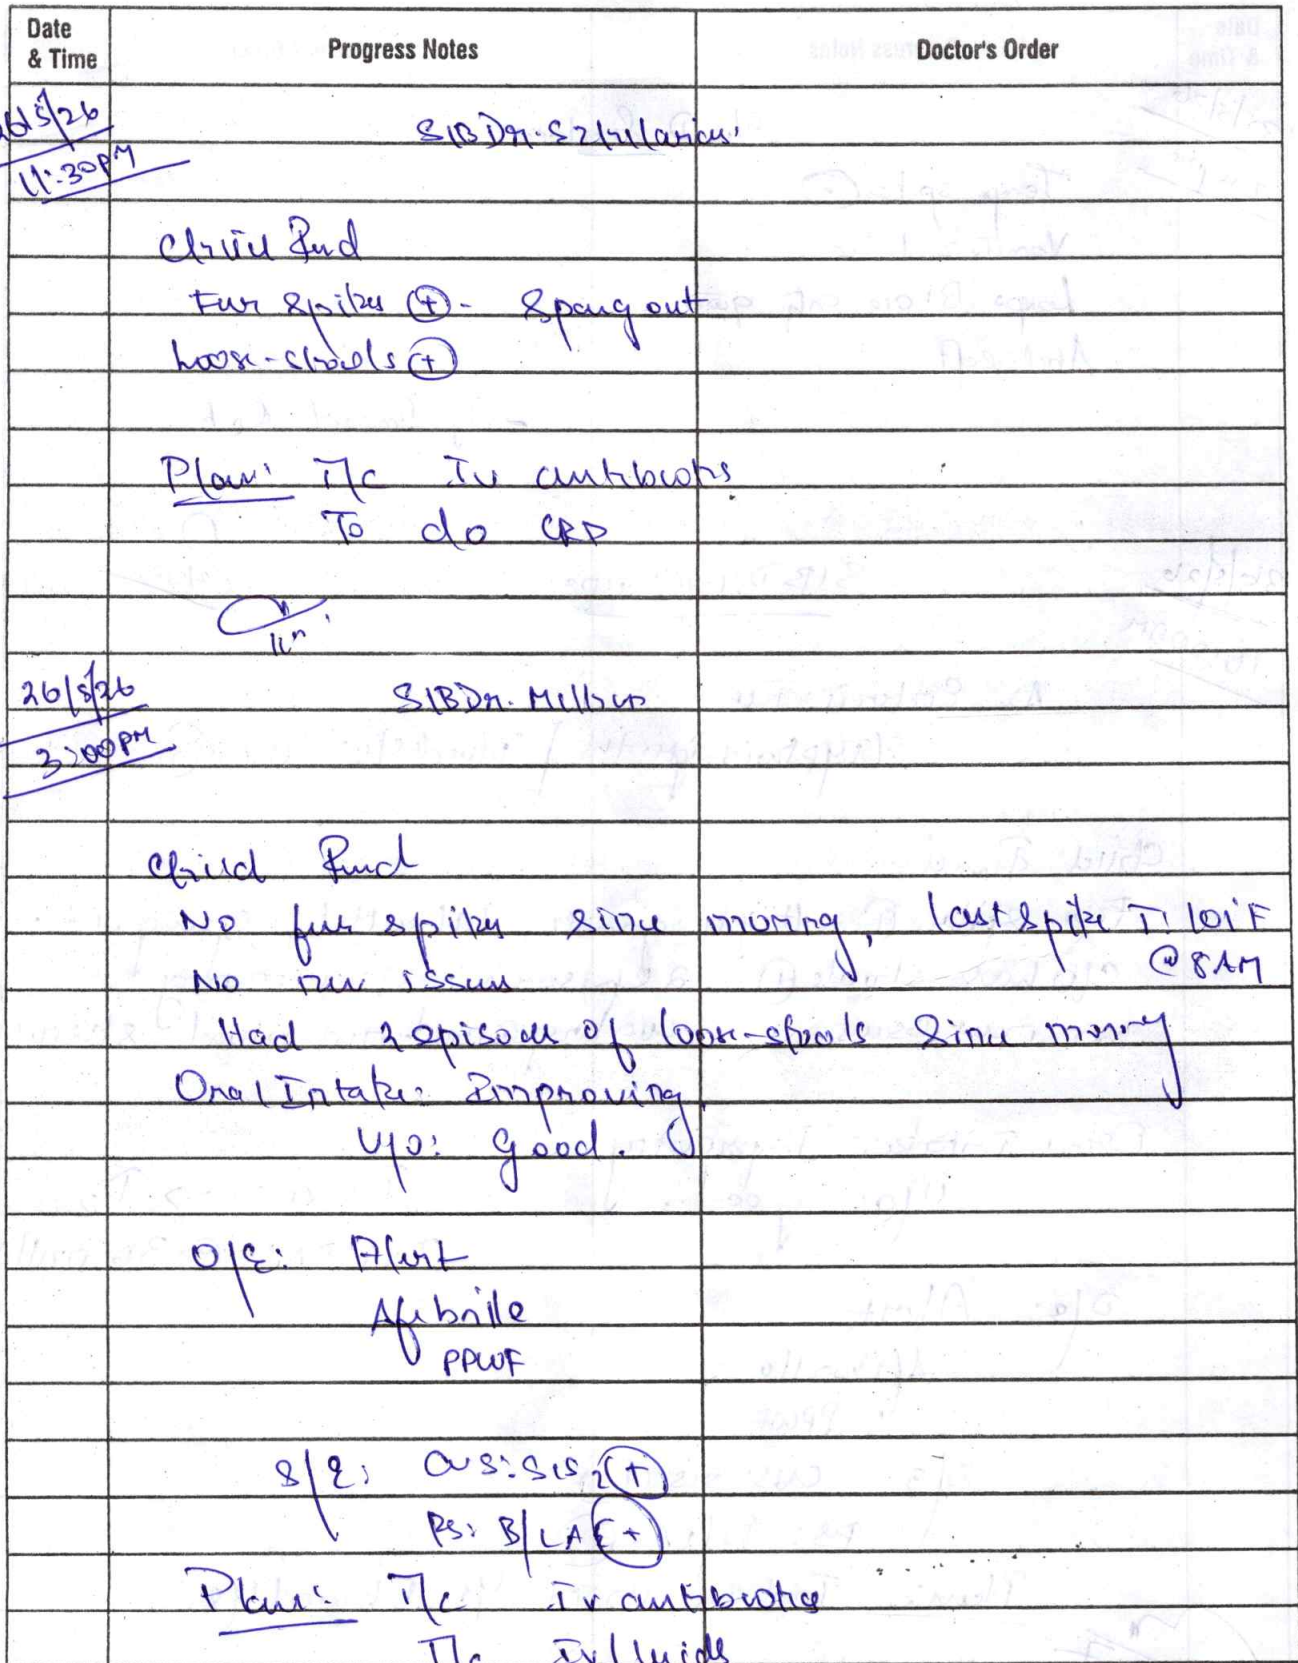 Date & Time Progress Notes Doctor's Order
26/5/26 S/B Dr.
11:30pm
Child
Fever spikes (+) - Spang out
Loose-stools (+)
Plan: T/c Iv antibiotis
To do CRP
26/5/26 S/B Dr.
3:00pm
Child
No fever spikes since morning, last spike T: 101°F
@ 8AM
No new issues
Had 2 episodes of loose-stools since morning
Oral Intake: Improving.
U/O: Good.
O/E: Alert
Afebrile
PPWF
S/E: CVS: S1S2 (+)
RS: B/L AE (+)
Plan: T/c Iv antibiotics
T/c Iv fluids